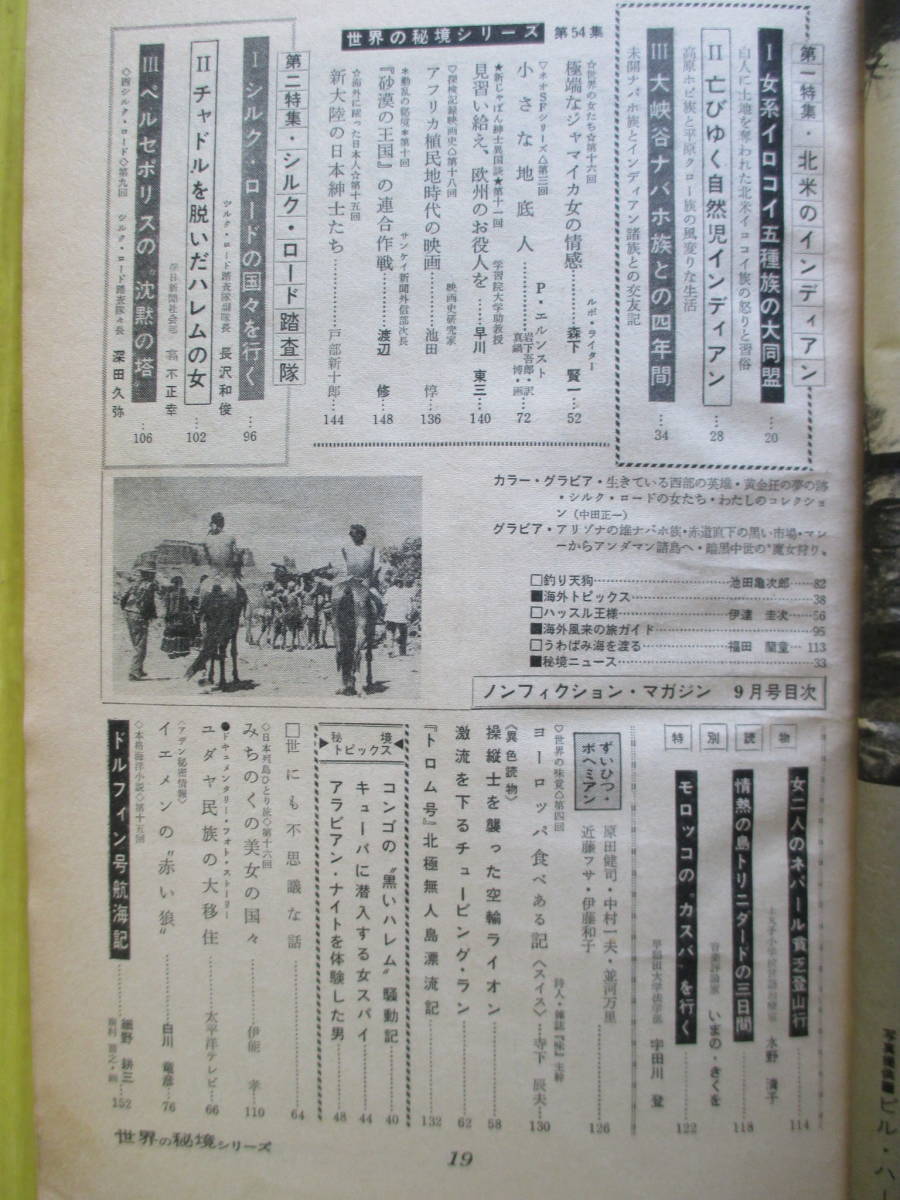 世界の秘境シリーズ 第54集
第一特集・北米のインディアン
Ⅰ 女系イロコイ五種族の大同盟…20
白人に土地を奪われた北米イロコイ族の怒りと習俗
Ⅱ 亡びゆく自然児インディアン…28
高原ホピ族と平原クロー族の風変りな生活
Ⅲ 大峡谷ナバホ族との四年間…34
未開ナバホ族とインディアン諸族との交友記
☆世界の女たち☆第十六回
極端なジャマイカ女の情感… ルポ・ライター 森下賢一…52
▽ネオSFシリーズ△第三回
小さな地底人 P・エルンスト 岩下吾郎・訳 真鍋博・画…72
★新じゃぱん紳士異国談★第十一回
見習い給え、欧州のお役人を… 学習院大学助教授 早川東三…140
▽探検記録映画史△第十八回
アフリカ植民地時代の映画… 映画史研究家 池田惇…136
＊動乱の秘境＊第十回
『砂漠の王国』の連合作戦… サンケイ新聞外信部次長 渡辺修…148
☆海外に躍った日本人☆第十五回
新大陸の日本紳士たち…戸部新十郎…144
第二特集・シルク・ロード踏査隊
Ⅰ シルク・ロードの国々を行く シルク・ロード踏査隊副隊長 長沢和俊…96
Ⅱ チャドルを脱いだハレムの女 朝日新聞社会部 高木正幸…102
Ⅲ ペルセポリスの〝沈黙の塔〟
◇西シルク・ロード◇第九回 シルク・ロード踏査隊々長 深田久弥…106
カラー・グラビア・生きている西部の英雄・黄金狂の夢の跡
・シルク・ロードの女たち・わたしのコレクション（中田正一）
グラビア・アリゾナの雄ナバホ族・赤道直下の黒い市場・マレーからアンダマン諸島へ・暗黒中世の〝魔女狩り〟
□釣り天狗…池田亀次郎…82
■海外トピックス…38
□ハッスル王様…伊達圭次…56
■海外風来の旅ガイド…95
□うわばみ海を渡る…福田蘭童…113
■秘境ニュース…33
ノンフィクション・マガジン 9月号目次
特別読物
女二人のネパール貧乏登山行 水野満子…114
情熱の島トリニダードの三日間 音楽評論家 いまの・きくを…118
モロッコの〝カスバ〟を行く 早稲田大学法学部 宇田川登…122
ずいひつ・ボヘミアン
原田健司・中村一夫・並河万里
近藤フサ・伊藤和子…126
▽世界の味覚△第四回
ヨーロッパ食べある記〈スイス〉… 詩人・雑誌『味』主幹 寺下辰夫…130
〈異色読物〉
操縦士を襲った空輸ライオン…58
激流を下るチュービング・ラン…62
『トロム号』北極無人島漂流記…132
秘境トピックス
コンゴの〝黒いハレム〟騒動記…40
キューバに潜入する女スパイ…44
アラビアン・ナイトを体験した男…48
□世にも不思議な話…64
◇日本列島ひとり旅◇第十六回
みちのくの美女の国々…伊能孝…110
●ドキュメンタリー・フォト・ストーリー
ユダヤ民族の大移住…太平洋テレビ…66
〈アデン秘密情報〉
イエメンの〝赤い狼〟…白川竜彦…76
◇本格海洋小説◇第十五回
ドルフィン号航海記…細野耕三…152
世界の秘境シリーズ
19